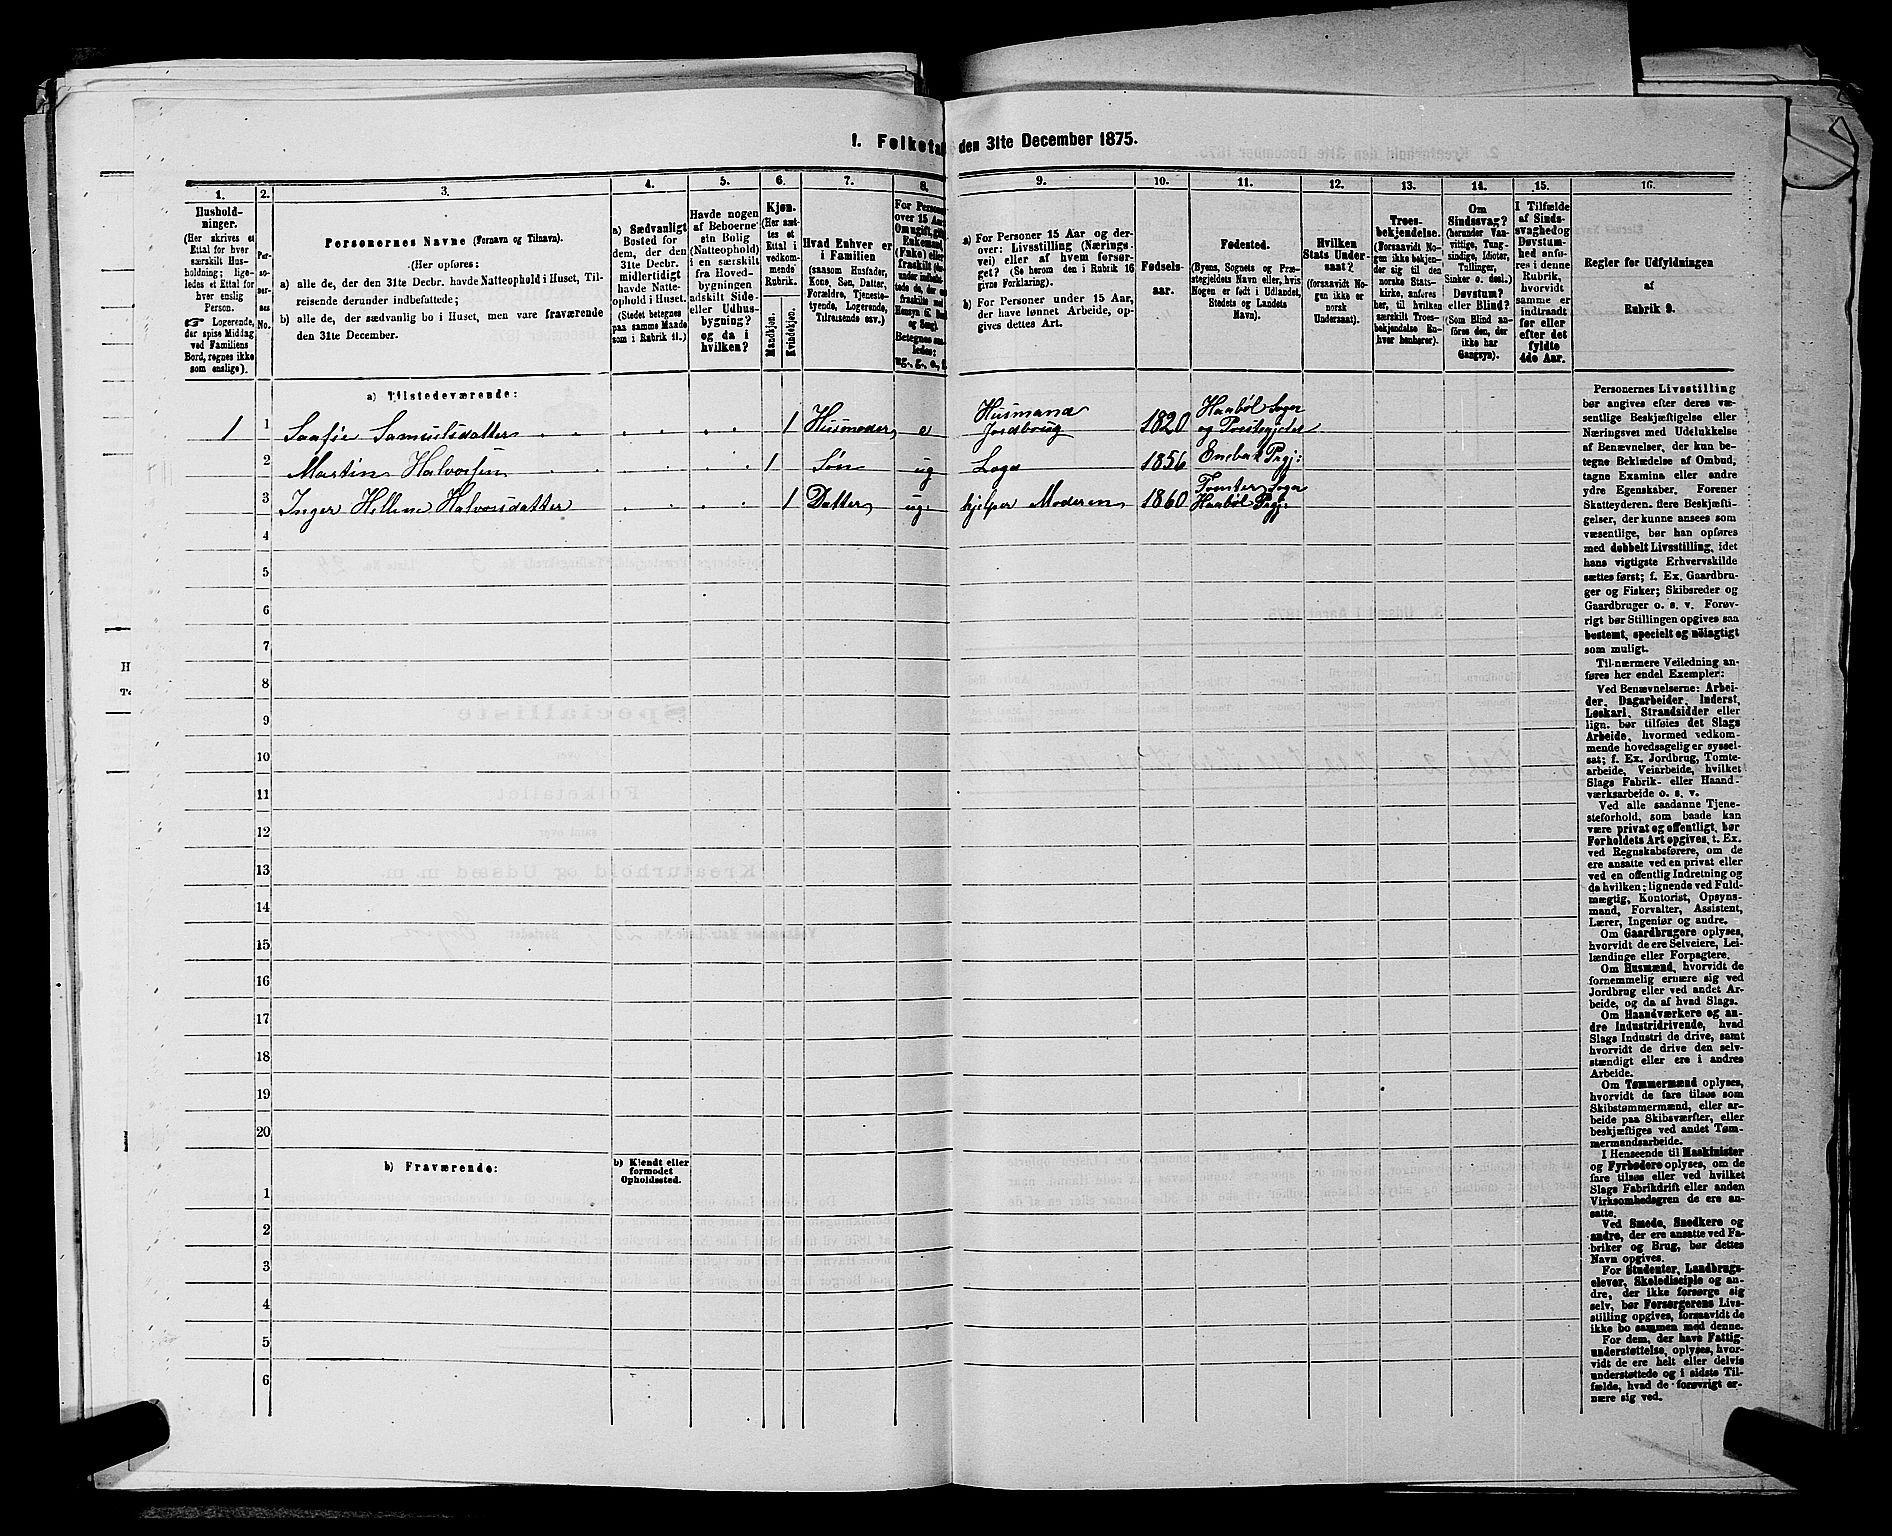 1. Folketal den 31te December 1875.
1. 2. 3. 4. 5. 6. 7. 8. 9. 10. 11. 12. 13. 14. 15. 16.
Hushold-
ninger.
(Her skrives et
Ettal for hver
særskilt Hus-
holdning; lige-
ledes et Ettal for
hver enslig
Person.
☞ Logerende,
der spise Middag
ved Familiens
Bord, regnes ikke
som enslige).
Per-
so-
ner-
nes
No.
Personernes Navne (Fornavn og Tilnavn).
(Her opføres:
a) alle de, der den 31te Decbr. havde Natteophold i Huset, Til-
reisende derunder indbefattede;
b) alle de, der sædvanlig bo i Huset, men vare fraværende
den 31te December.
a) Sædvanligt
Bosted for
dem, der den
31te Decbr.
midlertidigt
havde Natte-
ophold i Huset.
(Stedet betegnes
paa samme Maade
som i Rubrik 11.)
Havde nogen
af Beboerne
sin Bolig
(Natteophold)
i en særskilt
fra Hoved-
bygningen
adskilt Side-
eller Udhus-
bygning?
og da i
hvilken?
Kjøn.
(Her sæt-
tes et
Ettal i
vedkom-
mende
Rubrik.
Mandkjøn.
Kvindekjøn.
Hvad Enhver er
i Familien
(saasom Husfader,
Kone, Søn, Datter,
Forældre, Tjeneste-
tyende, Logerende,
Tilreisende osv.)
For Persone
over 15 Aar
a) For Personer 15 Aar og der-
over: Livsstilling (Nærings-
vei) eller af hvem forsør-
get? (Se herom den i Rubrik 16
givne Forklaring).
b) For Personer under 15 Aar,
der have lønnet Arbeide, op-
gives dettes Art.
Fødsels-
aar.
Fødested.
(Byens, Sognets og Præ-
stegjeldets Navn eller, hvis
Nogen er født i Udlandet,
Stedets og Landets
Navn).
Hvilken
Stats Under-
saat?
(forsaavidt No-
gen ikke er
norsk
Undersaat).
Troes-
bekjendelse.
(Forsaavidt No-
gen ikke bekjen-
der sig til den
norske Stats-
kirke, anføres
her, til hvilken
særskilt Troes-
bekjendelse En-
hver henhører).
Om
Sindssvag?
(herunder Van-
vittige, Tung-
sindige, Idioter,
Tullinger,
Sinker o. desl.)
Døvstum?
eller Blind?
(Som Blind an-
føres den, der
ikke har
Gangsyn).
I Tilfælde
af Sinds-
svaghed og
Døvstum-
hed anfø-
res i denne
Rubrik,
hvorvidt
samme er
indtraadt
før eller
efter det
fyldte
4de Aar.
Regler for Udfyldningen
af
Rubrik 9.
a) Tilstedeværende:
1 1 Saafie Samuelsdatter 1 Husmoder e Husmand Jordbrug 1820 Haabøl Sogn og Præstegjeld
2 Martin Halvorsen 1 Søn ug Logs 1856 Enebak Prgj:
3 Inger Hellene Halvorsdatter 1 Datter ug. hjelper Moderen 1860 Tomter Sogn Haabøl Prgj:
4
5
6
7
8
9
10
11
12
13
14
15
16
17
18
19
20
b) Fraværende:
b) Kjendt eller
formodet
Opholdssted.
1
2
3
4
5
6
Personernes Livsstilling
bør angives efter deres væ-
sentlige Beskjæftigelse eller
Næringsvei med Udelukkelse
af Benævnelser, der kun be-
tegne Beklædelse af Ombud,
tagne Examina eller andre
ydre Egenskaber. Forener
Skatteyderen flere Beskjæfti-
gelser, der kunne ansees som
væsentlige, bør han opføres
med dobbelt Livsstilling, idet
hans vigtigste Erhvervskilde
sættes først; f. Ex. Gaardbru-
ger og Fisker; Skibsreder og
Gaardbruger o. s. v. Forøv-
rigt bør Stillingen opgives saa
bestemt, specielt og nøiagtigt
som muligt.
Til nærmere Veiledning an-
føres her endel Exempler:
Ved Benævnelserne: Arbei-
der, Dagarbeider, Inderst,
Løskarl, Strandsidder eller
lign. bør tilføies det Slags
Arbeide, hvormed vedkom-
mende hovedsagelig er syssel-
sat; f. Ex. Jordbrug, Tomte-
arbeide, Veiarbeide, hvilket
Slags Fabrik- eller Haand-
værksarbeide o. s. v.
Ved alle saadanne Tjene-
steforhold, som baade kan
være privat og offentligt, bør
Forholdets Art opgives, t. Ex.
ved Regnskabsførere, om de
ere ansatte ved en privat eller
ved en offentlig Indretning og
da hvilken; lignende ved Fuld-
mægtig, Kontorist, Opsyns-
mand, Forvalter, Assistent,
Lærer, Ingeniør og andre.
Om Gaardbrugere oplyses,
hvorvidt de ere Selveiere, Lei-
lændinge eller Forpagtere.
Om Husmænd, hvorvidt de
fornemmelig ernære sig ved
Jordbrug eller ved andet Ar-
beide, og da af hvad Slags.
Om Haandværkere og an-
dre Industridrivende, hvad
Slags Industri de drive, samt
hvorvidt de drive den selv-
stændigt eller ere i andres
Arbeide.
Om Tømmermænd oplyses,
hvorvidt de fare tilsøs som
Skibstømmermænd, eller ar-
beide paa Skibsværfter, eller
beskjæftiges ved andet Tøm-
mermandsarbeide.
I Henseende til Maskinister
og Fyrbødere oplyses, om de
fare tilsøs eller ved hvilket
Slags Fabrikdrift eller anden
Virksomhedsgren de ere an-
satte.
Ved Smede, Snedkere og
andre, der ere ansatte ved Fa-
briker og Brug, bør dettes
Navn opgives.
For Studenter, Landbrugs-
elever, Skoledisciple og an-
dre, der ikke forsørge sig
selv, bør Forsørgerens Livs-
stilling opgives, forsaavidt de
ikke bo sammen med denne.
For dem, der have Fattig-
understøttelse, oplyses, hvor-
vidt de ere helt eller delvis
understøttede og i sidste Til-
fælde, hvad de forøvrigt er-
nære sig ved.